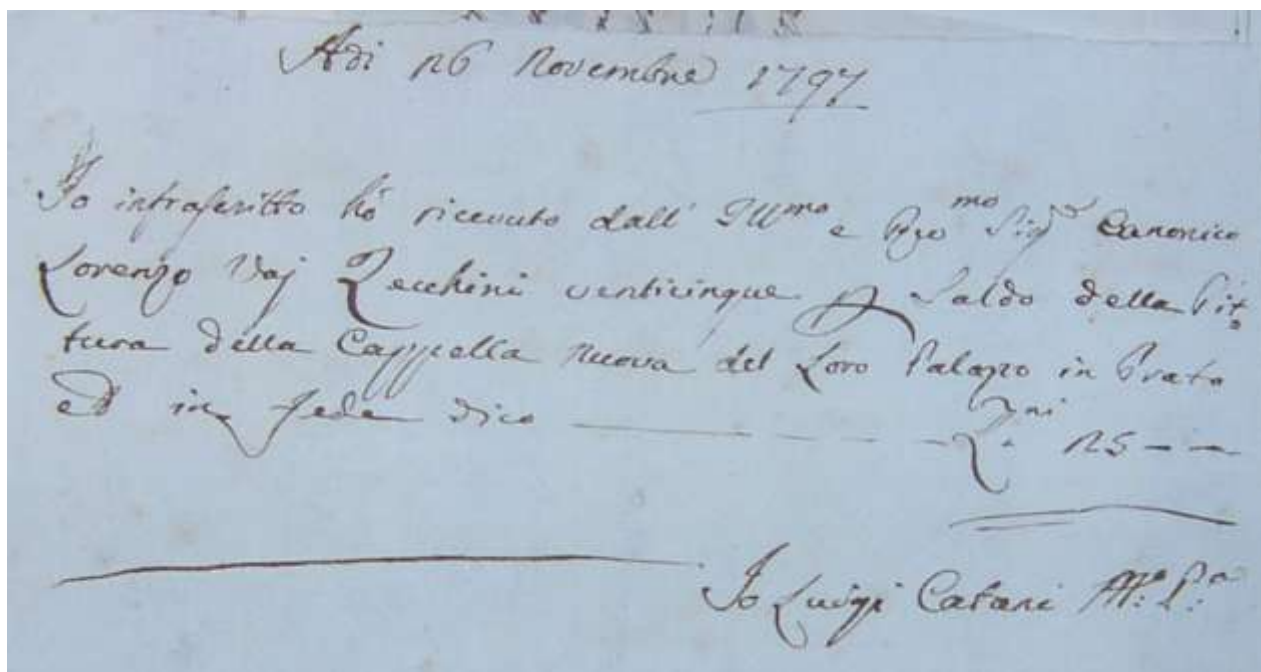 Adi 26 Novembre 1797
Io infrascritto hò ricevuto dall' Ill.mo e Rev.mo Sig.r Canonico
Lorenzo Vaj Zecchini venticinque p Saldo della Pit=
tura della Cappella nuova del Loro Palazzo in Prato
ed in fede dico Z.ni 25 — —
Io Luigi Catani M.o P.o